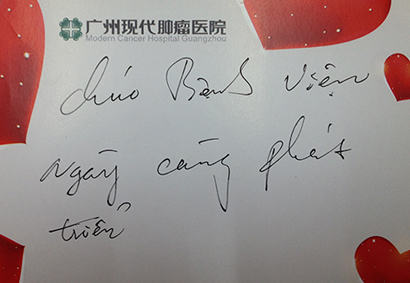 广州现代肿瘤医院
Modern Cancer Hospital Guangzhou
chúc Bệnh viện
ngày càng phát
triển